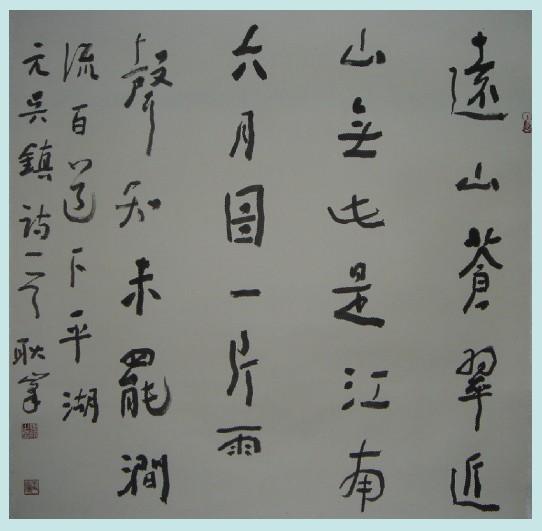 遠山蒼翠近
山無此是江南
六月圖一片雨
聲知未罷澗
流百道下平湖
元吳鎮詩一首 耿